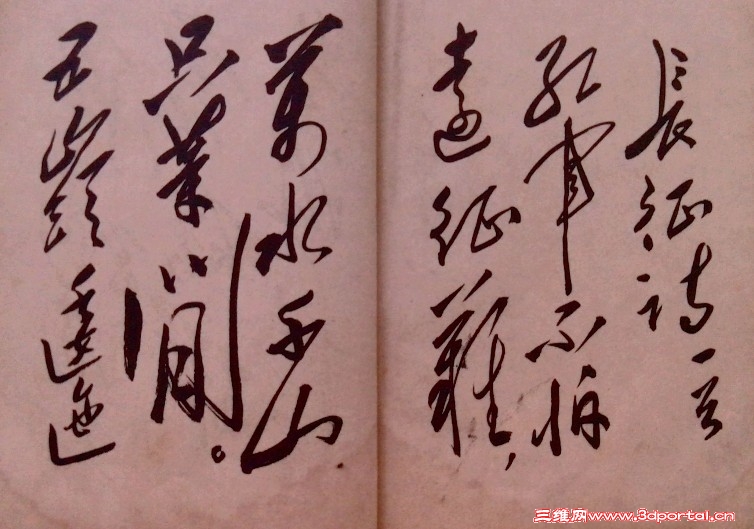 長征詩一首
紅軍不怕
遠征難，
萬水千山
只等閒。
五嶺逶迤
三维网www.3dportal.cn